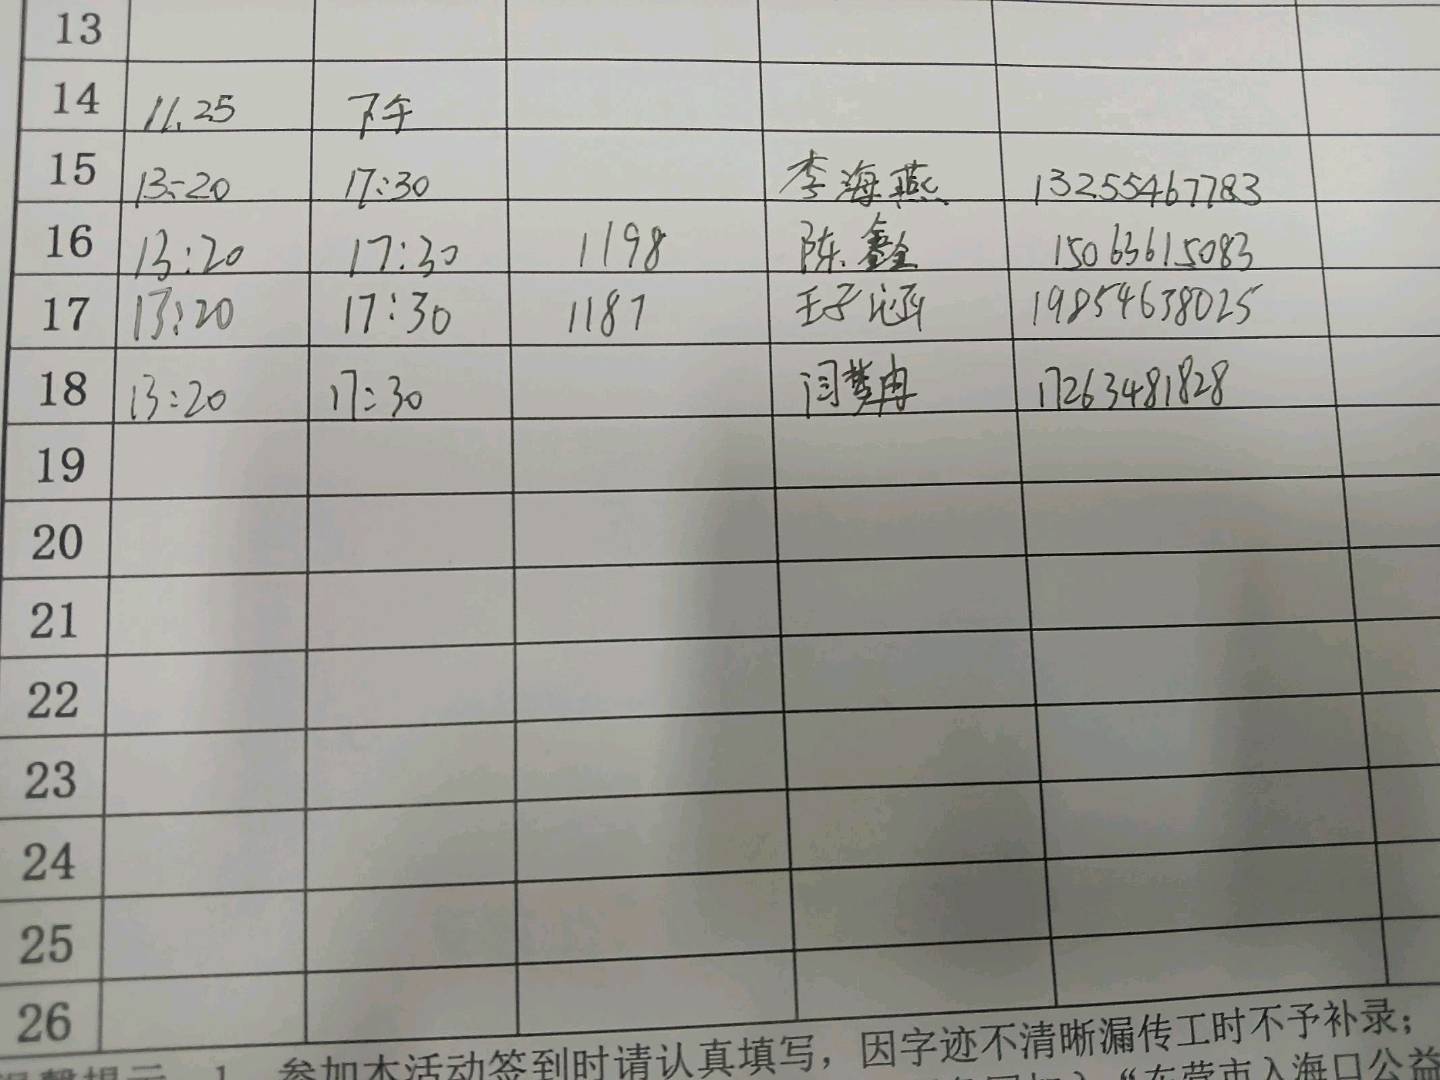 13
14 11.25 下午
15 13:20 17:30 李海燕 13255467783
16 13:20 17:30 1198 陈鑫 15063615083
17 13:20 17:30 1187 王子涵 19854638025
18 13:20 17:30 闫梦冉 17263481828
19
20
21
22
23
24
25
26
温馨提示 1、参加本活动签到时请认真填写，因字迹不清晰漏传工时不予补录；
“东营市入海口公益